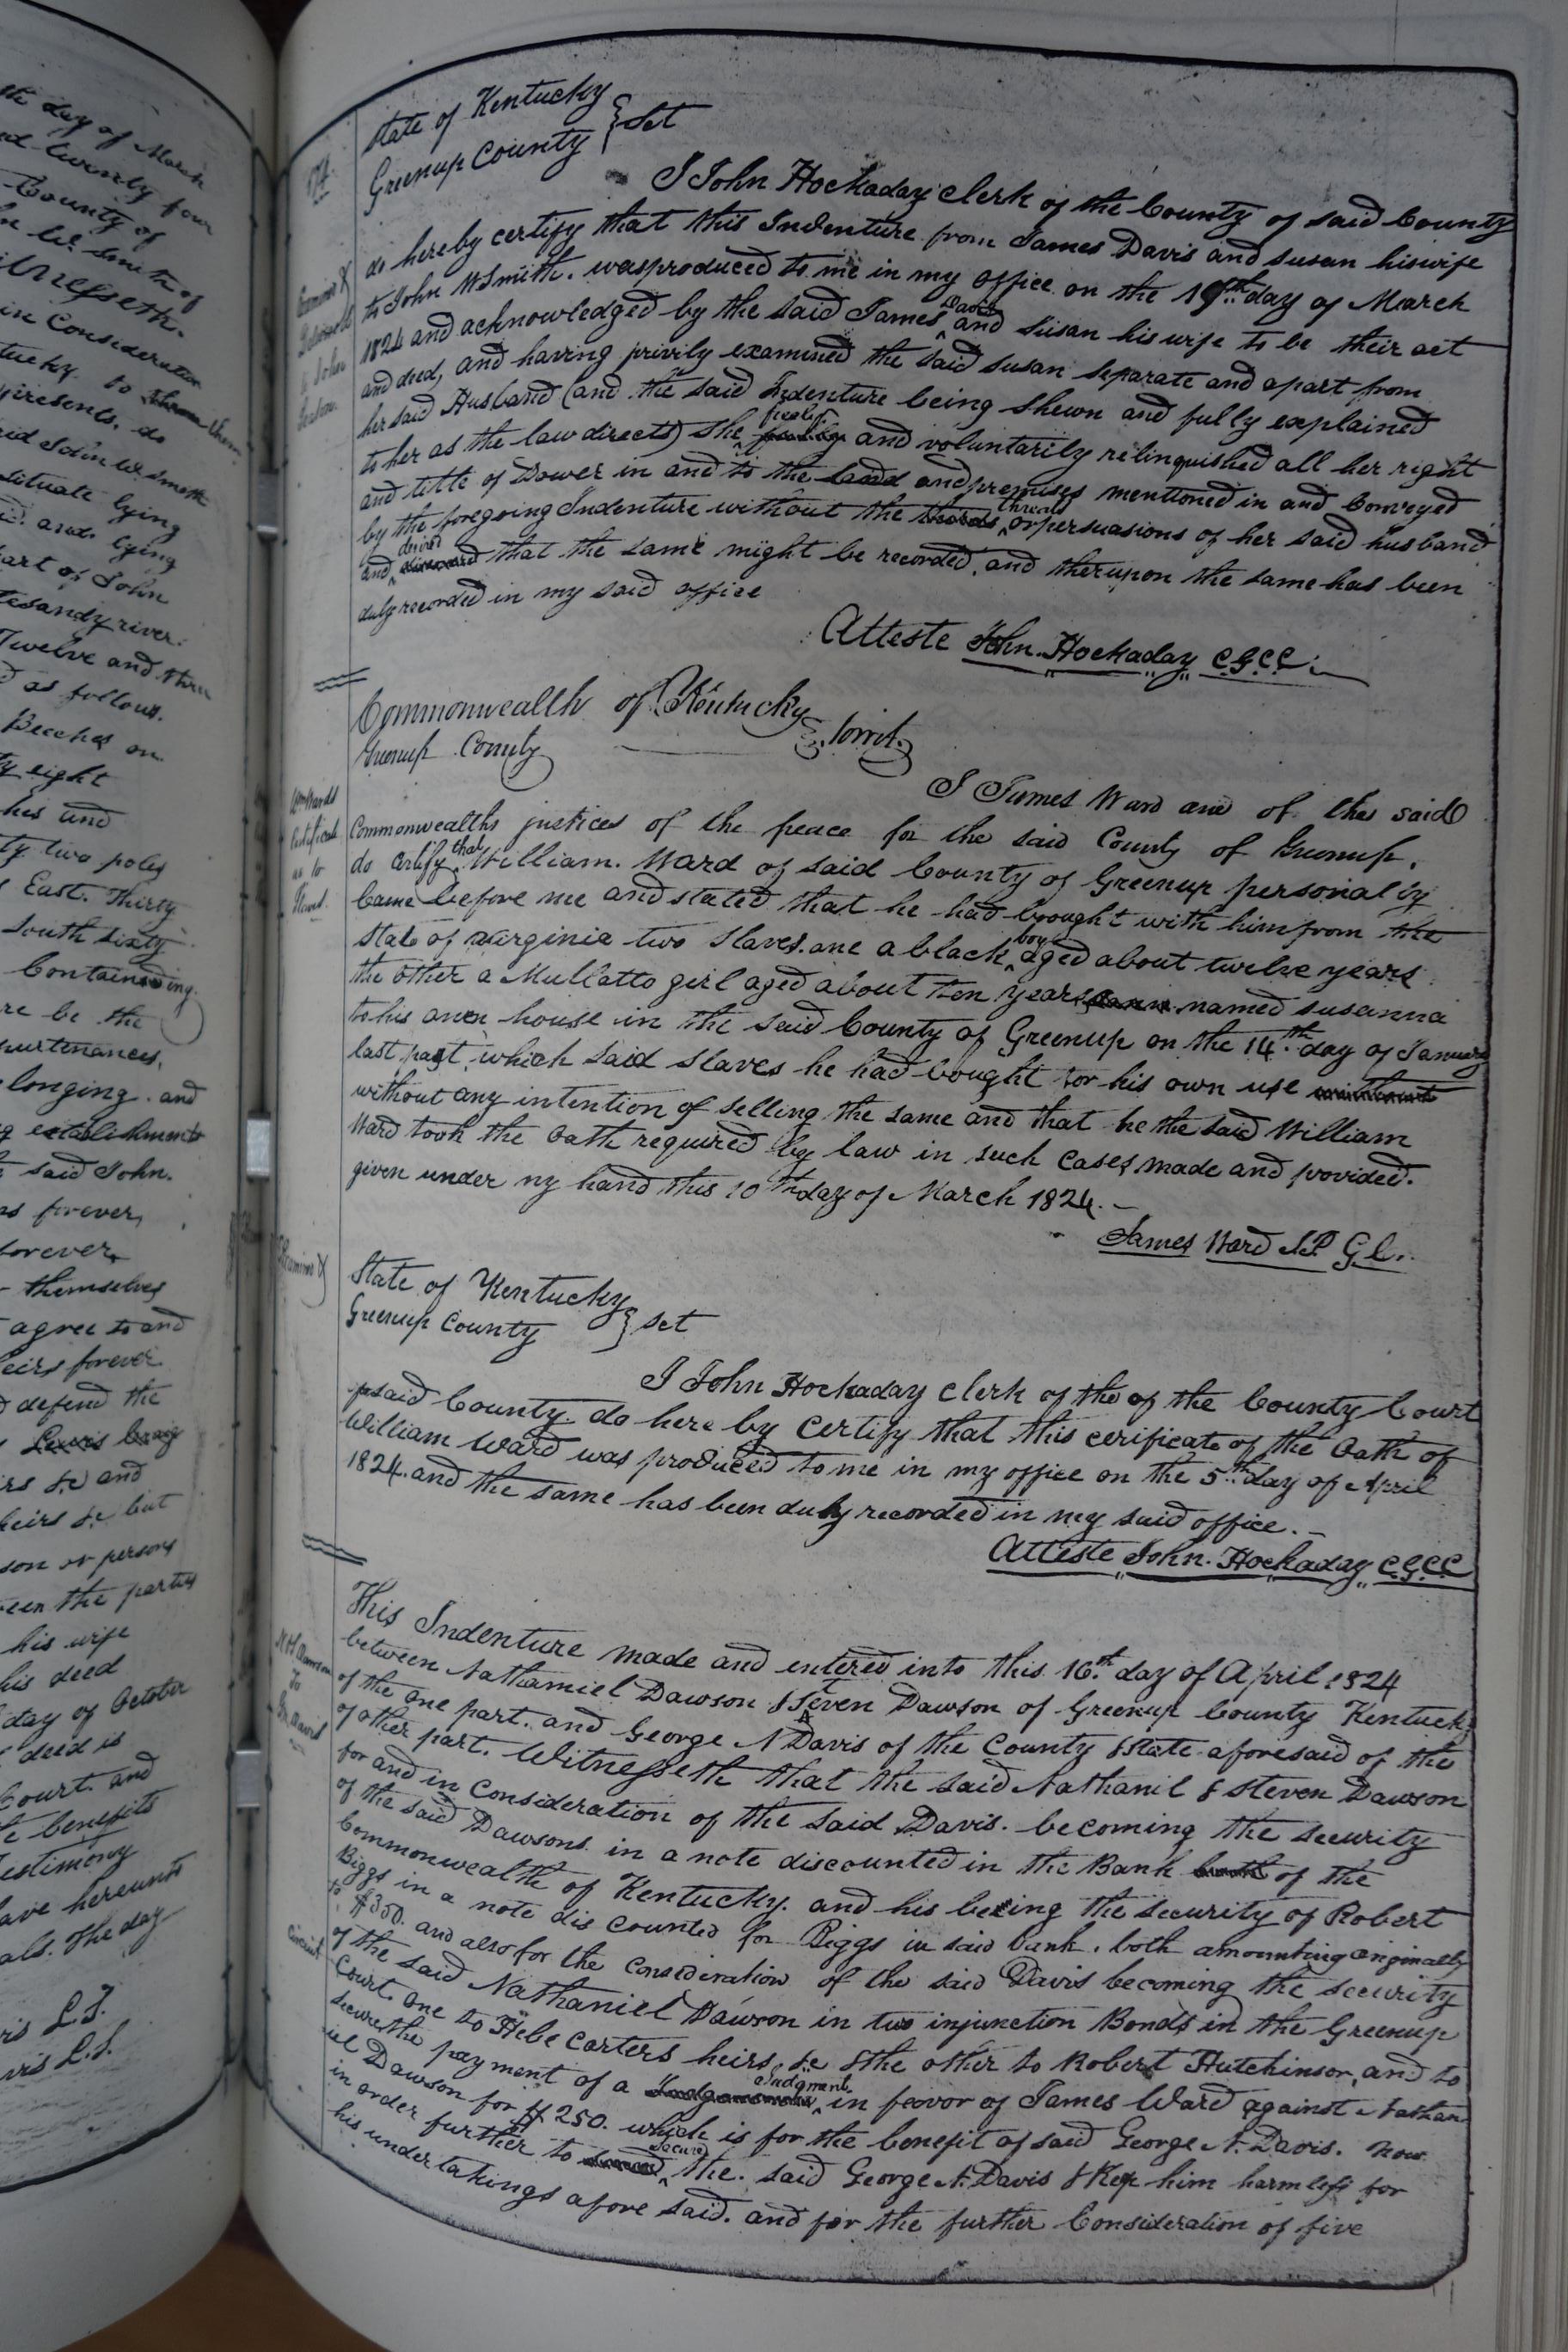 the day of March
and twenty four
County of
John W. Smith of
Witnesseth.
in Consideration
tucky to them
presents, do
said John W. Smith
situate lying
and lying
part of John
tesandy river.
Twelve and three
as follows.
Beeches on
ty eight
hes and
ty two poles
East. Thirty
South sixty
Containing
re be the
purtenances,
longing. and
establishments
said John.
rs forever,
forever
themselves
agree to and
eirs forever
defend the
Lewis Craig
irs &c and
heirs &c but
son or persons
een the parties
his wife
his deed
day of October
deed is
Court. and
e benefits
Testimony
have hereunto
als. The day
vis L.S.
vis L.S.
174
State of Kentucky
Greenup County } Set
I John Hockaday clerk of the County of said County
do hereby certify that this Indenture from James Davis and susan his wife
to John W Smith. was produced to me in my office on the 19th day of March
1824 and acknowledged by the said James Davis and susan his wife to be their act
and deed, and having privily examined the said susan separate and apart from
her said Husband (and the said Indenture being shewn and fully explained
to her as the law directs) she freely and voluntarily relinquished all her right
and title of Dower in and to the land and premises mentioned in and Conveyed
by the foregoing Indenture without the threats or persuasions of her said husband
and desired that the same might be recorded. and therupon the same has been
duly recorded in my said office
Atteste John. Hockaday C.G.C.C.
Commonwealth of Kentucky
Greenup County } towit.
Wm Wards
Certificate
as to
Slaves.
I James Ward one of the said
Commonwealths justices of the peace for the said County of Greenup.
do certify that William. Ward of said County of Greenup personally
Came before me and stated that he had brought with him from the
State of virginia two slaves. one a black boy aged about twelve years
the other a Mullatto girl aged about ten years named susanna
to his own house in the said County of Greenup on the 14th day of January
last past, which said slaves he had bought for his own use
without any intention of selling the same and that he the said William
Ward took the Oath required by law in such Cases made and provided.
given under my hand this 10th day of March 1824.
James Ward J.P. G.C.
Examined
State of Kentucky
Greenup County } set
I John Hockaday Clerk of the of the County Court
said County. do here by Certify that this cerificate of the Oath of
William Ward was produced to me in my office on the 5th day of April
1824. and the same has been duly recorded in my said office.
Atteste John. Hockaday C.G.C.C
To
Davis
This Indenture made and entered into this 16th day of April 1824
between Nathaniel Dawson & Steven Dawson of Greenup County Kentucky
of the One part. and George N Davis of the County & State aforesaid of the
of other part. Witnesseth that the said Nathanil & Steven Dawson
for and in Consideration of the said Davis. becoming the security
of the said Dawsons. in a note discounted in the Bank of the
Commonwealth of Kentucky. and his being the security of Robert
Biggs in a note dis counted for Biggs in said bank. both amounting Originally
to $350. and also for the Consideration of the said Davis becoming the security
of the said Nathaniel Dawson in two injunction Bonds in the Greenup
Circuit Court. One to Hebe Carters heirs, &c & the other to Robert Hutchinson, and to
secure the payment of a Judgment in favor of James Ward against Nathan
iel Dawson for $250. which is for the benefit of said George N. Davis. Now
in order further to secure the. said George N. Davis & Kep him harmless for
his undertakings afore said. and for the further Consideration of five